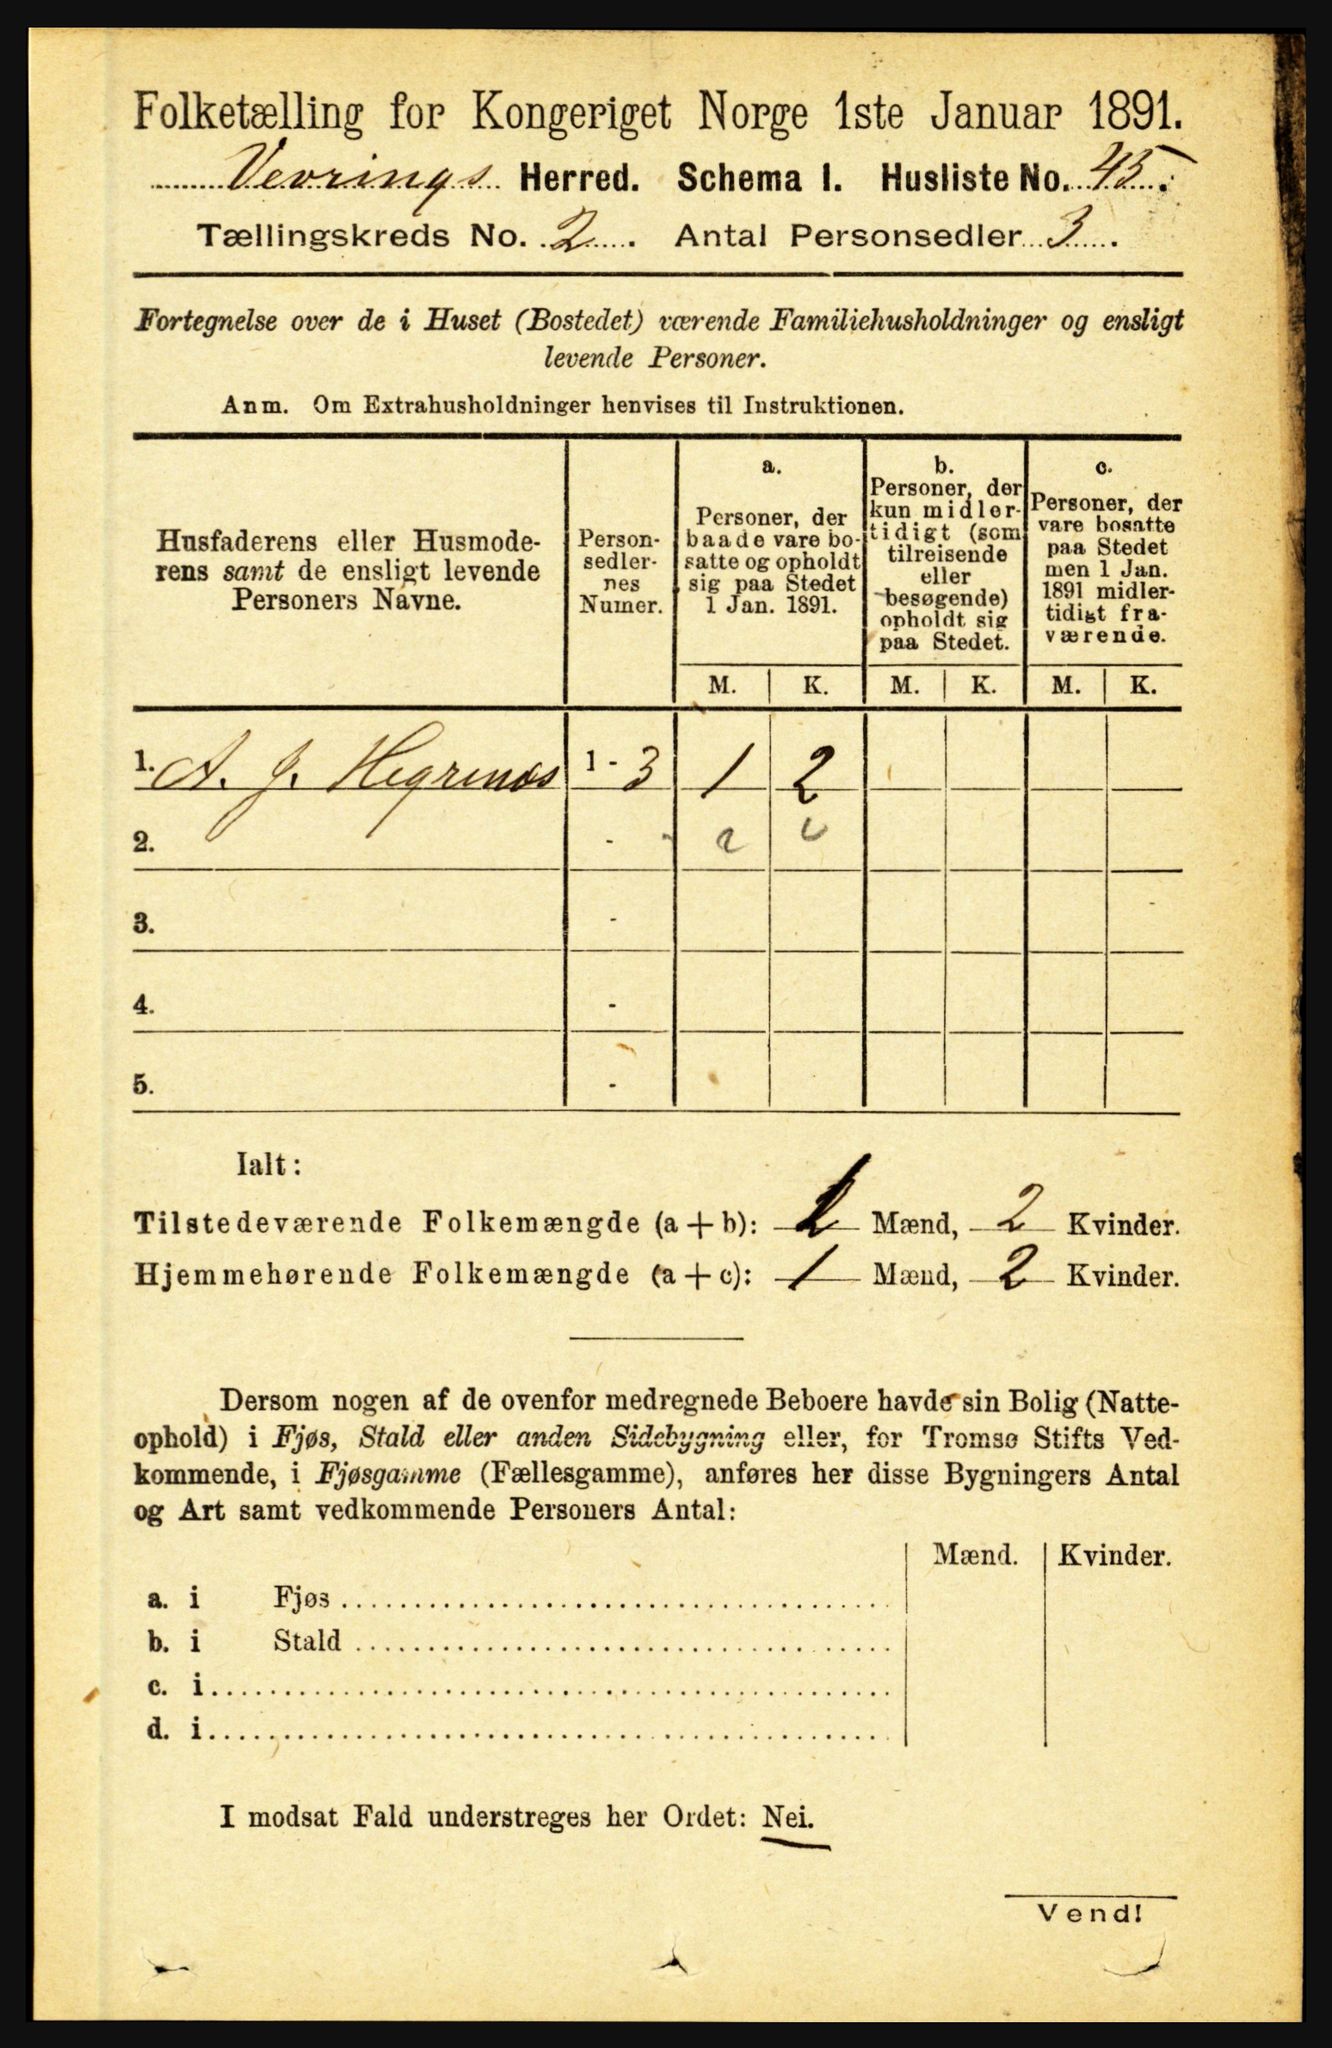 Folketælling for Kongeriget Norge 1ste Januar 1891.
Vevrings Herred. Schema 1. Husliste No. 45.
Tællingskreds No. 2. Antal Personsedler 3.
Fortegnelse over de i Huset (Bostedet) værende Familiehusholdninger og ensligt
levende Personer.
Anm. Om Extrahusholdninger henvises til Instruktionen.
Husfaderens eller Husmode-
rens samt de ensligt levende
Personers Navne.
Person-
sedler-
nes
Numer.
a.
Personer, der
baade vare bo-
satte og opholdt
sig paa Stedet
1 Jan. 1891.
b.
Personer, der
kun midler-
tidigt (som
tilreisende
eller
besøgende)
opholdt sig
paa Stedet.
c.
Personer, der
vare bosatte
paa Stedet
men 1 Jan.
1891 midler-
tidigt fra-
værende.
M. K. M. K. M. K.
1. A. J. Hegrenæs 1 - 3 1 2
2. -
3. -
4. -
5. -
Ialt:
Tilstedeværende Folkemængde (a + b): 1 Mænd, 2 Kvinder.
Hjemmehørende Folkemængde (a + c): 1 Mænd, 2 Kvinder.
Dersom nogen af de ovenfor medregnede Beboere havde sin Bolig (Natte-
ophold) i Fjøs, Stald eller anden Sidebygning eller, for Tromsø Stifts Ved-
kommende, i Fjøsgamme (Fællesgamme), anføres her disse Bygningers Antal
og Art samt vedkommende Personers Antal:
Mænd. Kvinder.
a. i Fjøs
b. i Stald
c. i
d. i
I modsat Fald understreges her Ordet: Nei.
Vend!